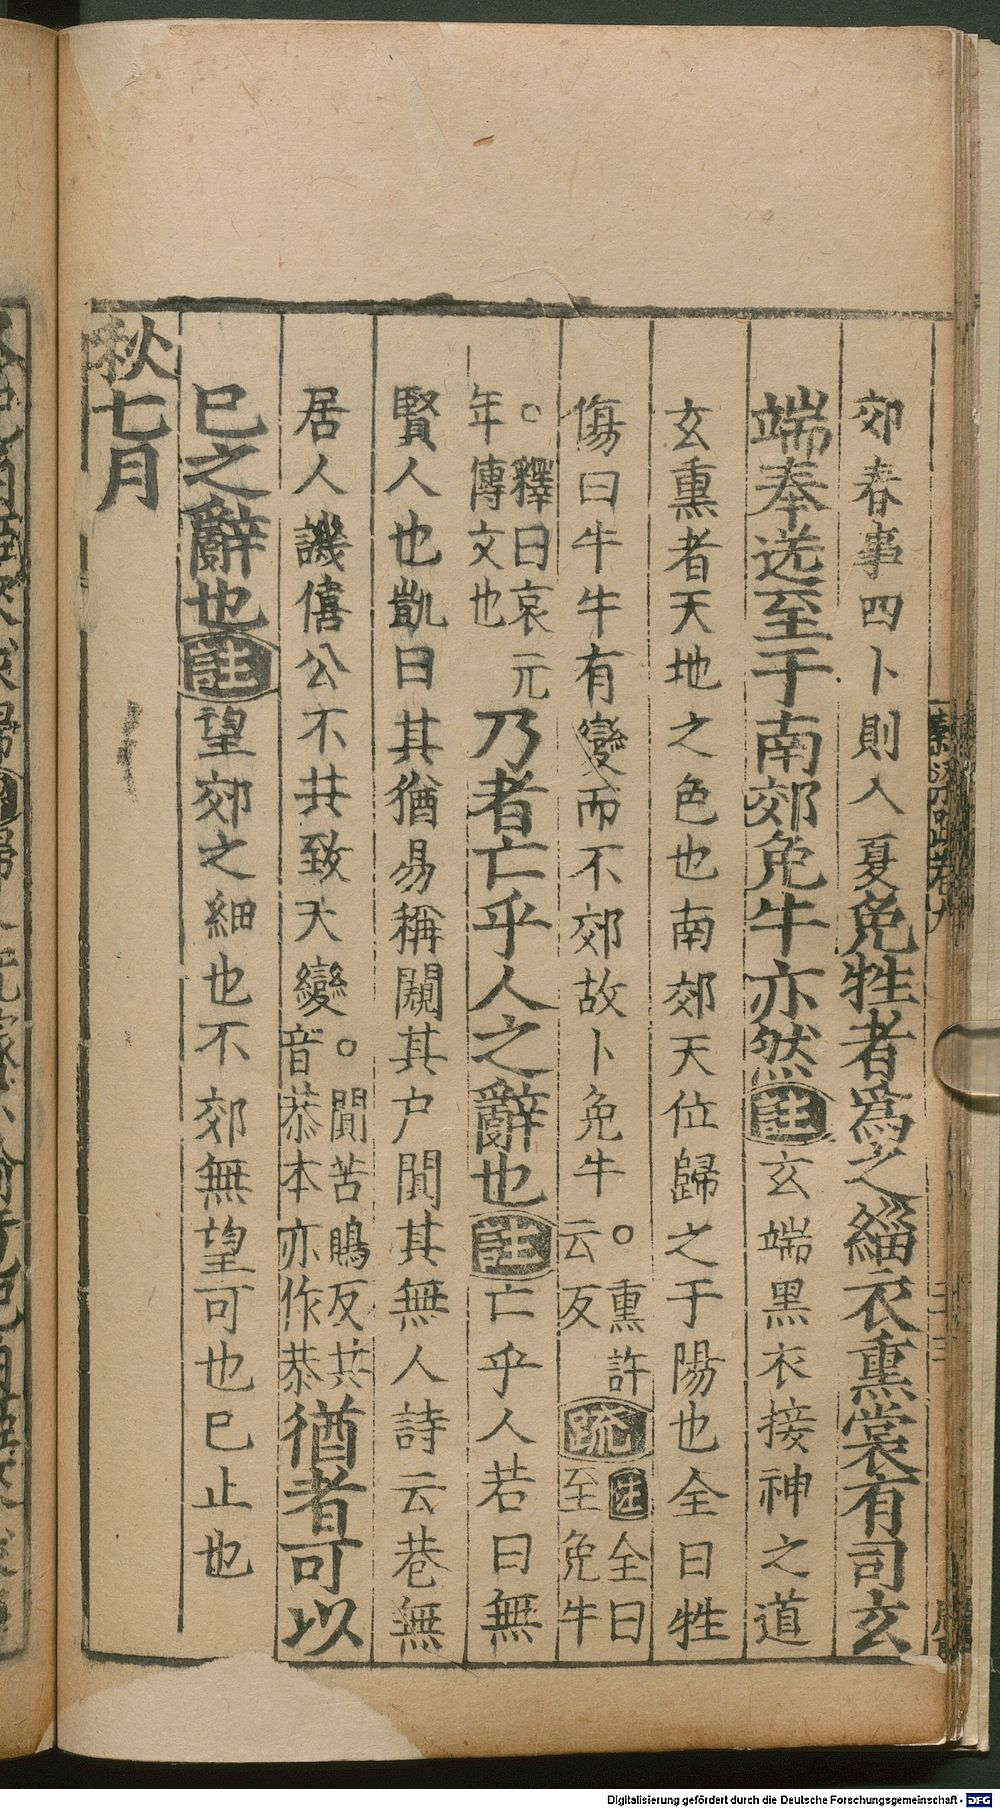 郊春事四卜則入夏免牲者爲之緇衣熏裳有司玄
端奉送至于南郊免牛亦然註玄端黑衣接神之道
玄熏者天地之色也南郊天位歸之于陽也全曰牲
傷曰牛牛有變而不郊故卜免牛。熏許云反疏注全曰至免牛
。釋曰哀元年傳文也乃者亡乎人之辭也註亡乎人若曰無
賢人也凱曰其猶易稱闚其户闃其無人詩云巷無
居人譏僖公不共致天變。闃苦鵙反共音恭本亦作恭猶者可以
已之辭也註望郊之細也不郊無望可也已止也
秋七月
Digitalisierung gefördert durch die Deutsche Forschungsgemeinschaft - DFG